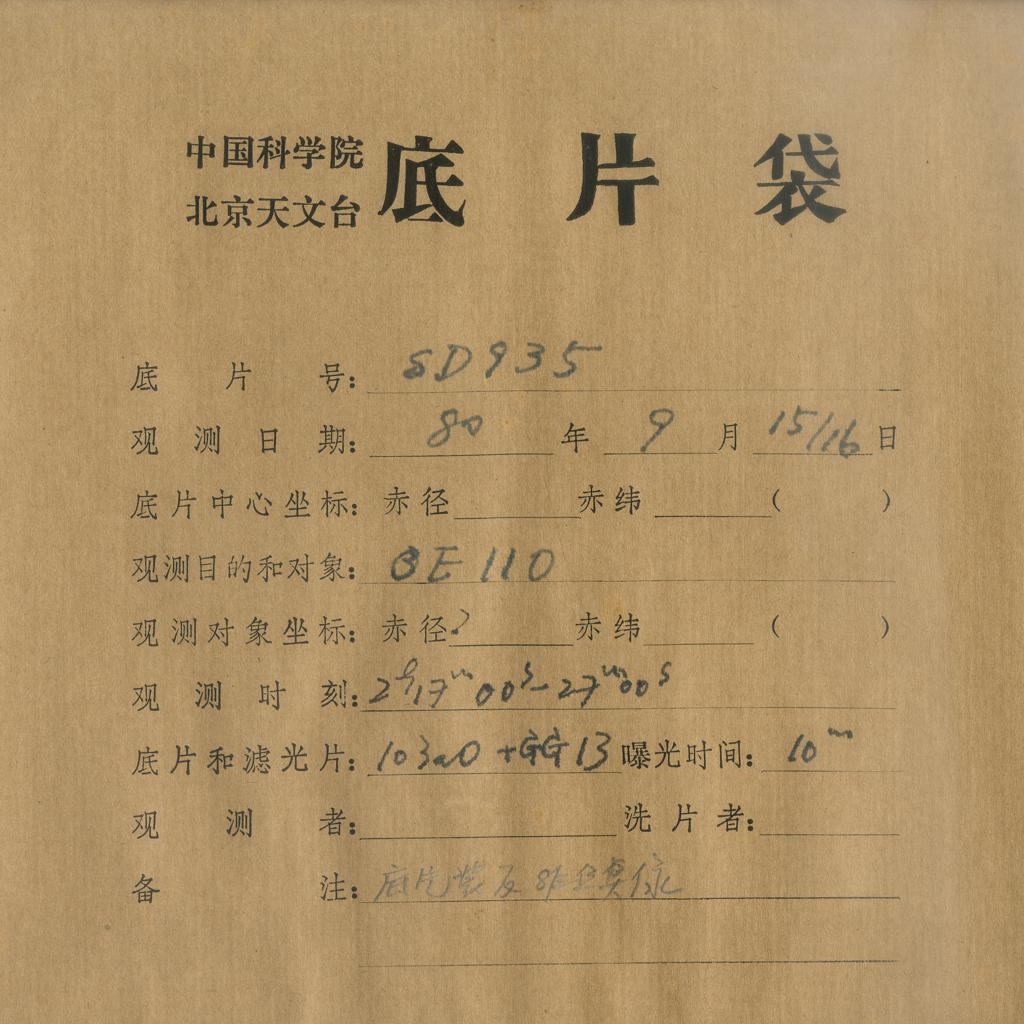 中国科学院
北京天文台
底片袋
底片号: SD935
观测日期: 80年9月15/16日
底片中心坐标: 赤径 赤纬 ( )
观测目的和对象: OE 110
观测对象坐标: 赤径 赤纬 ( )
观测时刻: 2h17m00s-27m00s
底片和滤光片: 103aO+GG13 曝光时间: 10m
观测者: 洗片者:
备注: 底片装反